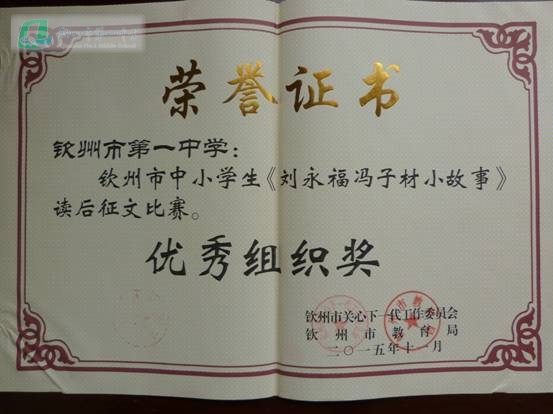 荣誉证书
钦州市第一中学：
钦州市中小学生《刘永福冯子材小故事》
读后征文比赛。
优秀组织奖
钦州市关心下一代工作委员会
钦州市教育局
二〇一五年十一月